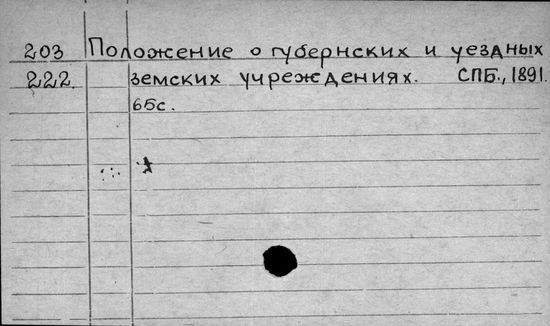 203 Положение о губернских и уездных
222. земских учреждениях. СПБ., 1891.
65с.